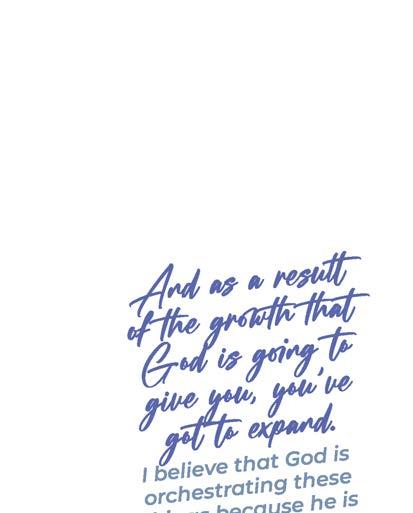 And as a result
of the growth that
God is going to
give you, you've
got to expand.
I believe that God is
orchestrating these
because he is